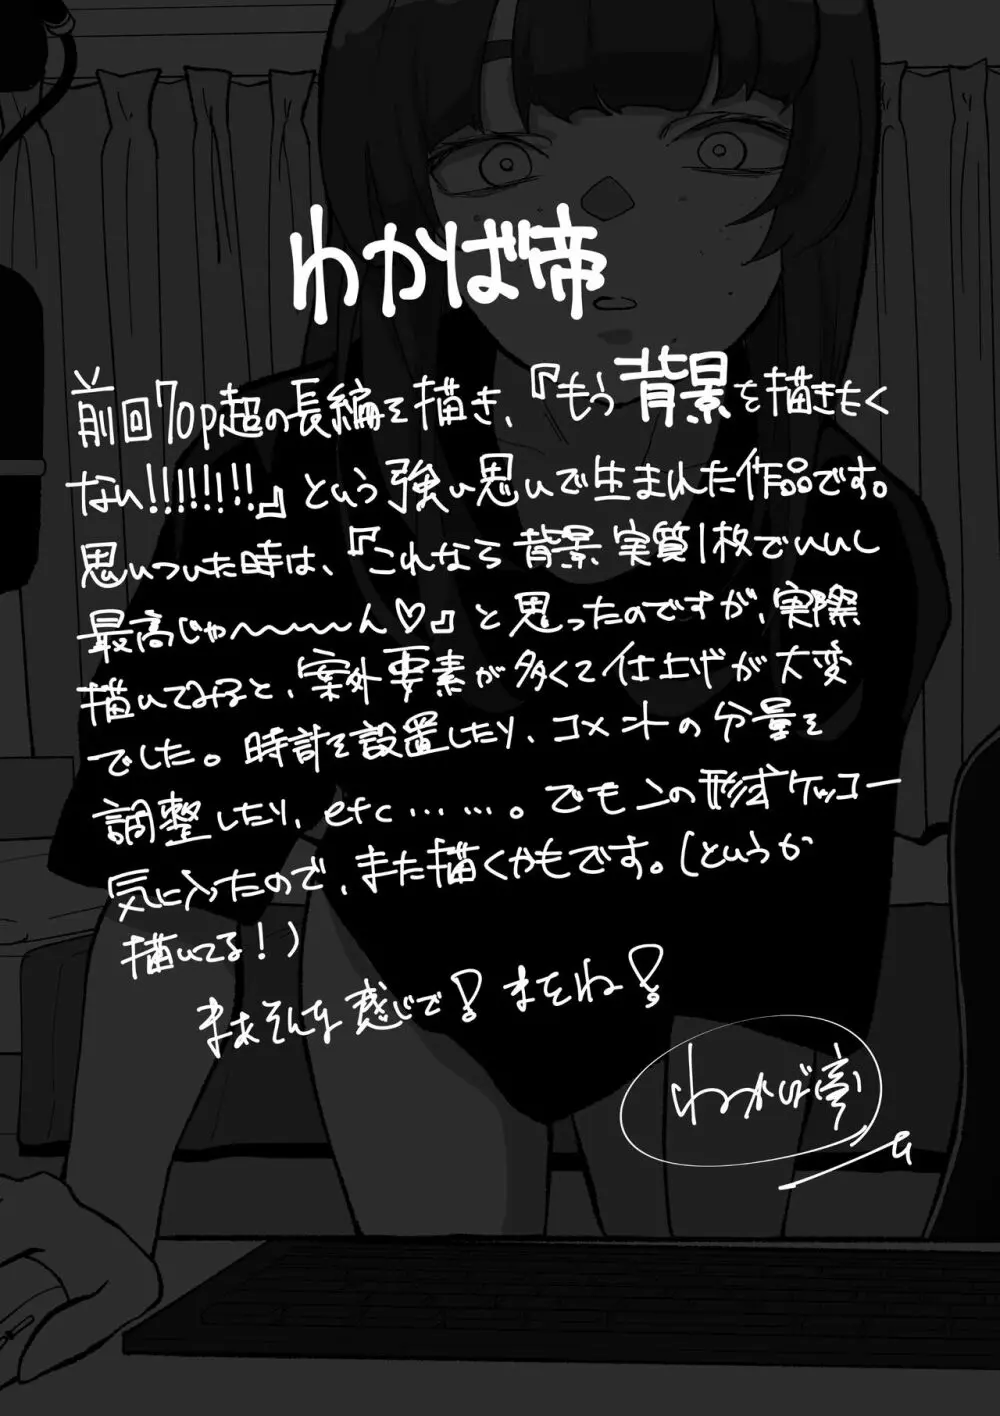 わかば帝
前回70p超の長編を描き、『もう背景を描きたく
ない!!!!!!!!』という強い思いで生まれた作品です。
思いついた時は、『これなら背景実質1枚でいいし
最高じゃ〜〜〜〜ん♡』と思ったのですが、実際
描いてみると、案外要素が多くて仕上げが大変
でした。時計を設置したり、コメントの分量を
調整したり、etc……。でもこの形式ケッコー
気に入ったので、また描くかもです。(というか
描いてる!)
まあそんな感じで!またね!
わかば帝